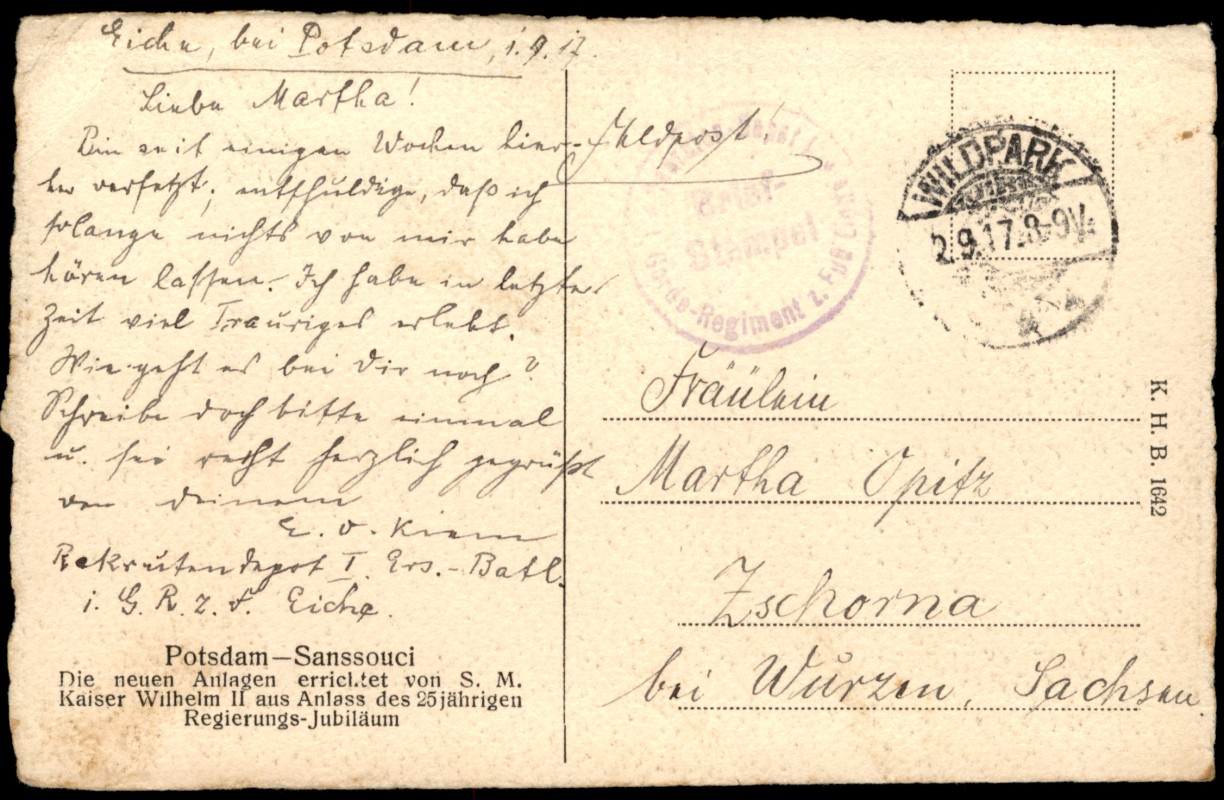 Eiche, bei Potsdam, 1.9.17.
Liebe Martha!
Bin seit einigen Wochen hier-
her versetzt; entschuldige, daß ich
solange nichts von mir habe
hören lassen. Ich habe in letzter
Zeit viel Trauriges erlebt.
Wie geht es bei Dir noch?
Schreibe doch bitte einmal
u. sei recht herzlich gegrüßt
von deinem
E. v.
Rekrutendepot I. Ers.-Batl.
1. G. R. z. F. Eiche.
Potsdam—Sanssouci
Die neuen Anlagen errichtet von S. M.
Kaiser Wilhelm II aus Anlass des 25jährigen
Regierungs-Jubiläum
Feldpost!
Brief-
Stempel
Garde-Regiment z. Fuß
WILDPARK
2.9.17.8-9V.
Fräulein
Martha Opitz
Zschorna
bei Wurzen, Sachsen
K. H. B. 1642